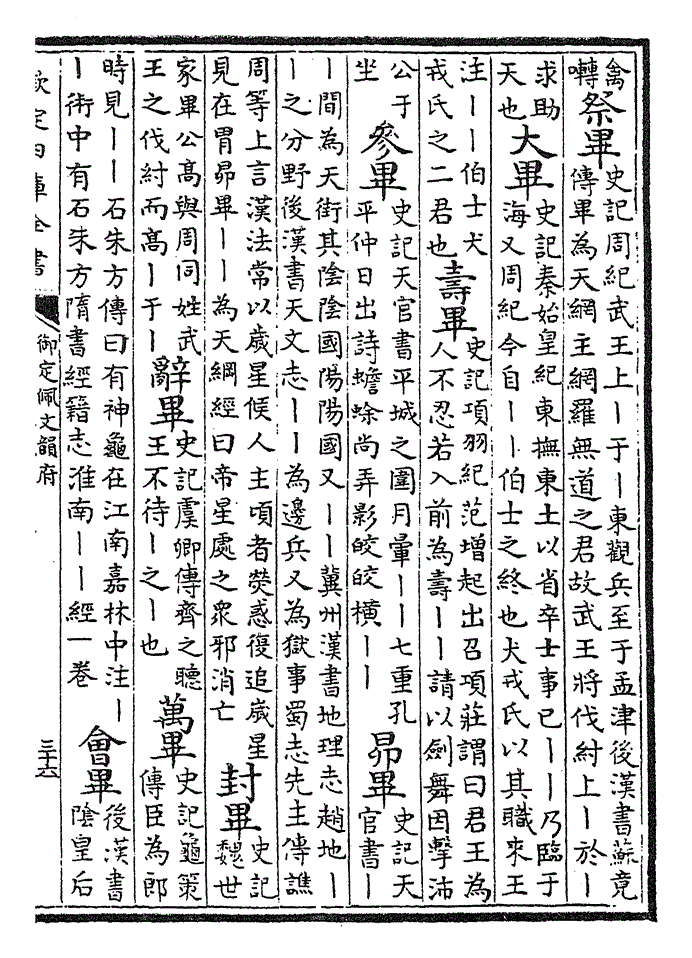 禽
囀
祭畢
史記周紀武王上丨于丨東觀兵至于孟津後漢書蘇竟
傳畢為天網主網羅無道之君故武王將伐紂上丨於丨
求助
天也
大畢
史記秦始皇紀東撫東土以省卒士事已丨丨乃臨于
海又周紀今自丨丨伯士之終也犬戎氏以其職來王
注丨丨伯士犬
戎氏之二君也
壽畢
史記項羽紀范增起出召項莊謂曰君王為
人不忍若入前為壽丨丨請以劍舞因擊沛
公于
坐
參畢
史記天官書平城之圍月暈丨丨七重孔
平仲日出詩蟾蜍尚弄影皎皎橫丨丨
昴畢
史記天
官書丨
丨間為天街其陰陰國陽陽國又丨丨冀州漢書地理志趙地丨
丨之分野後漢書天文志丨丨為邊兵又為獄事蜀志先主傳譙
周等上言漢法常以歲星候人主頃者熒惑復追歲星
見在胃昴畢丨丨為天綱經曰帝星處之衆邪消亡
封畢
史記
魏世
家畢公高與周同姓武
王之伐紂而高丨于丨
辭畢
史記虞卿傳齊之聽
王不待丨之丨也
萬畢
史記龜策
傳臣為郎
時見丨丨石朱方傳曰有神龜在江南嘉林中注丨
丨術中有石朱方隋書經籍志淮南丨丨經一卷
會畢
後漢書
陰皇后
欽定四庫全書
御定佩文韻府
三十六